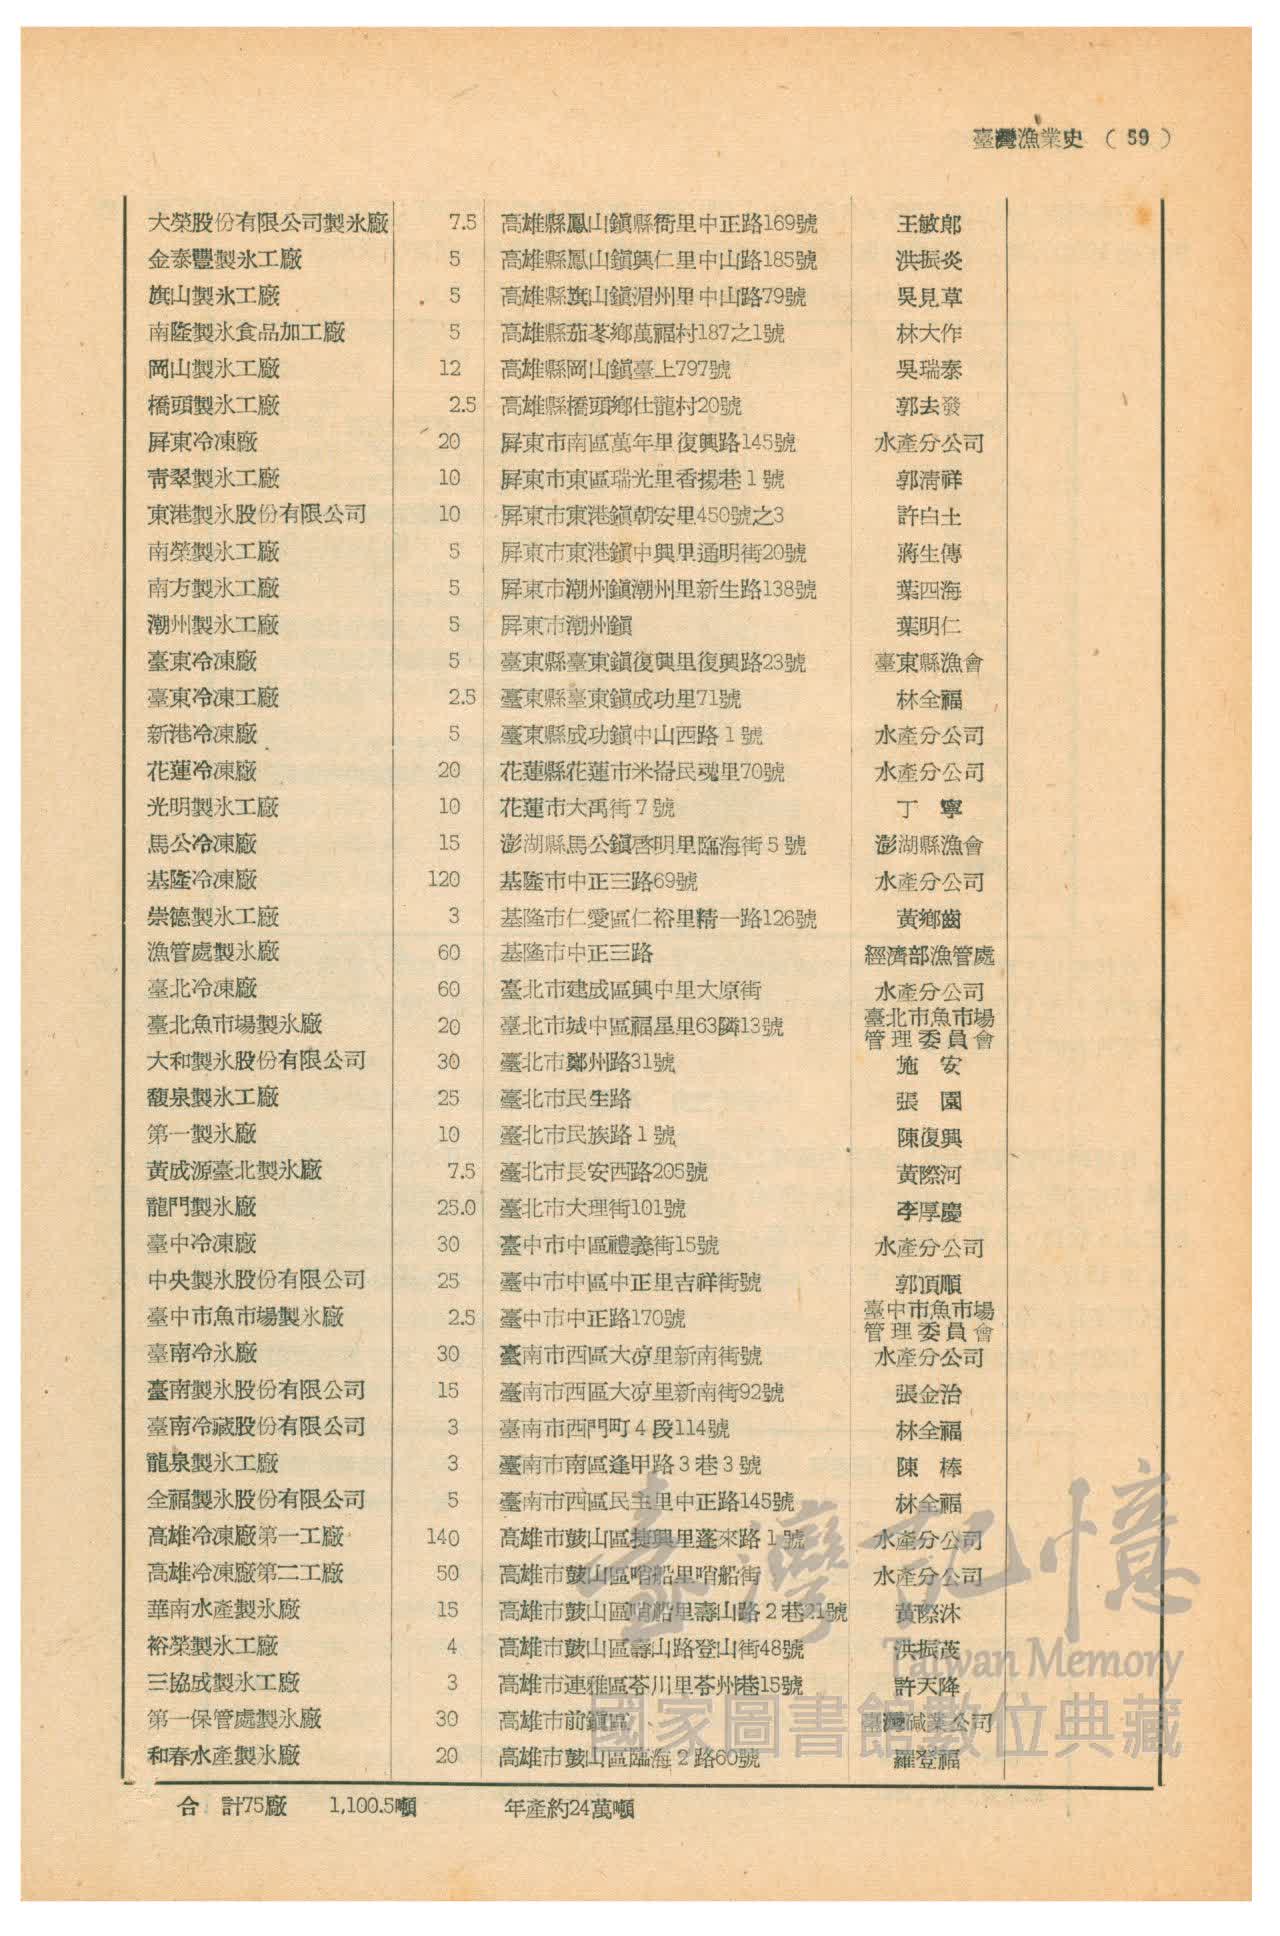 臺灣漁業史 ( 59 )
大榮股份有限公司製氷廠 7.5 高雄縣鳳山鎭縣衙里中正路169號 王敏郎
金泰豐製氷工廠 5 高雄縣鳳山鎭興仁里中山路185號 洪振炎
旗山製氷工廠 5 高雄縣旗山鎭湄州里中山路79號 吳見草
南隆製氷食品加工廠 5 高雄縣茄苳鄉萬福村187之1號 林大作
岡山製氷工廠 12 高雄縣岡山鎭臺上797號 吳瑞泰
橋頭製氷工廠 2.5 高雄縣橋頭鄉仕龍村20號 郭去發
屏東冷凍廠 20 屏東市南區萬年里復興路145號 水產分公司
靑翠製氷工廠 10 屏東市東區瑞光里香揚巷1號 郭淸祥
東港製氷股份有限公司 10 屏東市東港鎭朝安里450號之3 許白土
南榮製氷工廠 5 屏東市東港鎭中興里通明街20號 蔣生傳
南方製氷工廠 5 屏東市潮州鎭潮州里新生路138號 葉四海
潮州製氷工廠 5 屏東市潮州鎭 葉明仁
臺東冷凍廠 5 臺東縣臺東鎭復興里復興路23號 臺東縣漁會
臺東冷凍工廠 2.5 臺東縣臺東鎭成功里71號 林全福
新港冷凍廠 5 臺東縣成功鎭中山西路1號 水產分公司
花蓮冷凍廠 20 花蓮縣花蓮市米崙民魂里70號 水產分公司
光明製氷工廠 10 花蓮市大禹街7號 丁 寧
馬公冷凍廠 15 澎湖縣馬公鎭啓明里臨海街5號 澎湖縣漁會
基隆冷凍廠 120 基隆市中正三路69號 水產分公司
崇德製氷工廠 3 基隆市仁愛區仁裕里精一路126號 黃鄉齒
漁管處製氷廠 60 基隆市中正三路 經濟部漁管處
臺北冷凍廠 60 臺北市建成區興中里大原街 水產分公司
臺北魚市場製氷廠 20 臺北市城中區福星里63隣13號 臺北市魚市場
管理委員會
大和製氷股份有限公司 30 臺北市鄭州路31號 施 安
馥泉製氷工廠 25 臺北市民生路 張 園
第一製氷廠 10 臺北市民族路1號 陳復興
黃成源臺北製氷廠 7.5 臺北市長安西路205號 黃際河
龍門製氷廠 25.0 臺北市大理街101號 李厚慶
臺中冷凍廠 30 臺中市中區禮義街15號 水產分公司
中央製氷股份有限公司 25 臺中市中區中正里吉祥街號 郭頂順
臺中市魚市場製氷廠 2.5 臺中市中正路170號 臺中市魚市場
管理委員會
臺南冷氷廠 30 臺南市西區大凉里新南街號 水產分公司
臺南製氷股份有限公司 15 臺南市西區大凉里新南街92號 張金治
臺南冷藏股份有限公司 3 臺南市西門町4段114號 林全福
龍泉製氷工廠 3 臺南市南區逢甲路3巷3號 陳 棒
全福製氷股份有限公司 5 臺南市西區民主里中正路145號 林全福
高雄冷凍廠第一工廠 140 高雄市鼓山區捷興里蓬來路1號 水產分公司
高雄冷凍廠第二工廠 50 高雄市鼓山區哨船里哨船街 水產分公司
華南水產製氷廠 15 高雄市鼓山區哨船里壽山路2巷21號 黃際沐
裕榮製氷工廠 4 高雄市鼓山區壽山路登山街48號 洪振茂
三協成製氷工廠 3 高雄市連雅區苓川里苓州巷15號 許天降
第一保管處製氷廠 30 高雄市前鎭區 臺灣碱業公司
和春水產製氷廠 20 高雄市鼓山區臨海2路60號 羅登福
合 計75廠 1,100.5噸 年產約24萬噸
臺灣記憶
Taiwan Memory
國家圖書館數位典藏